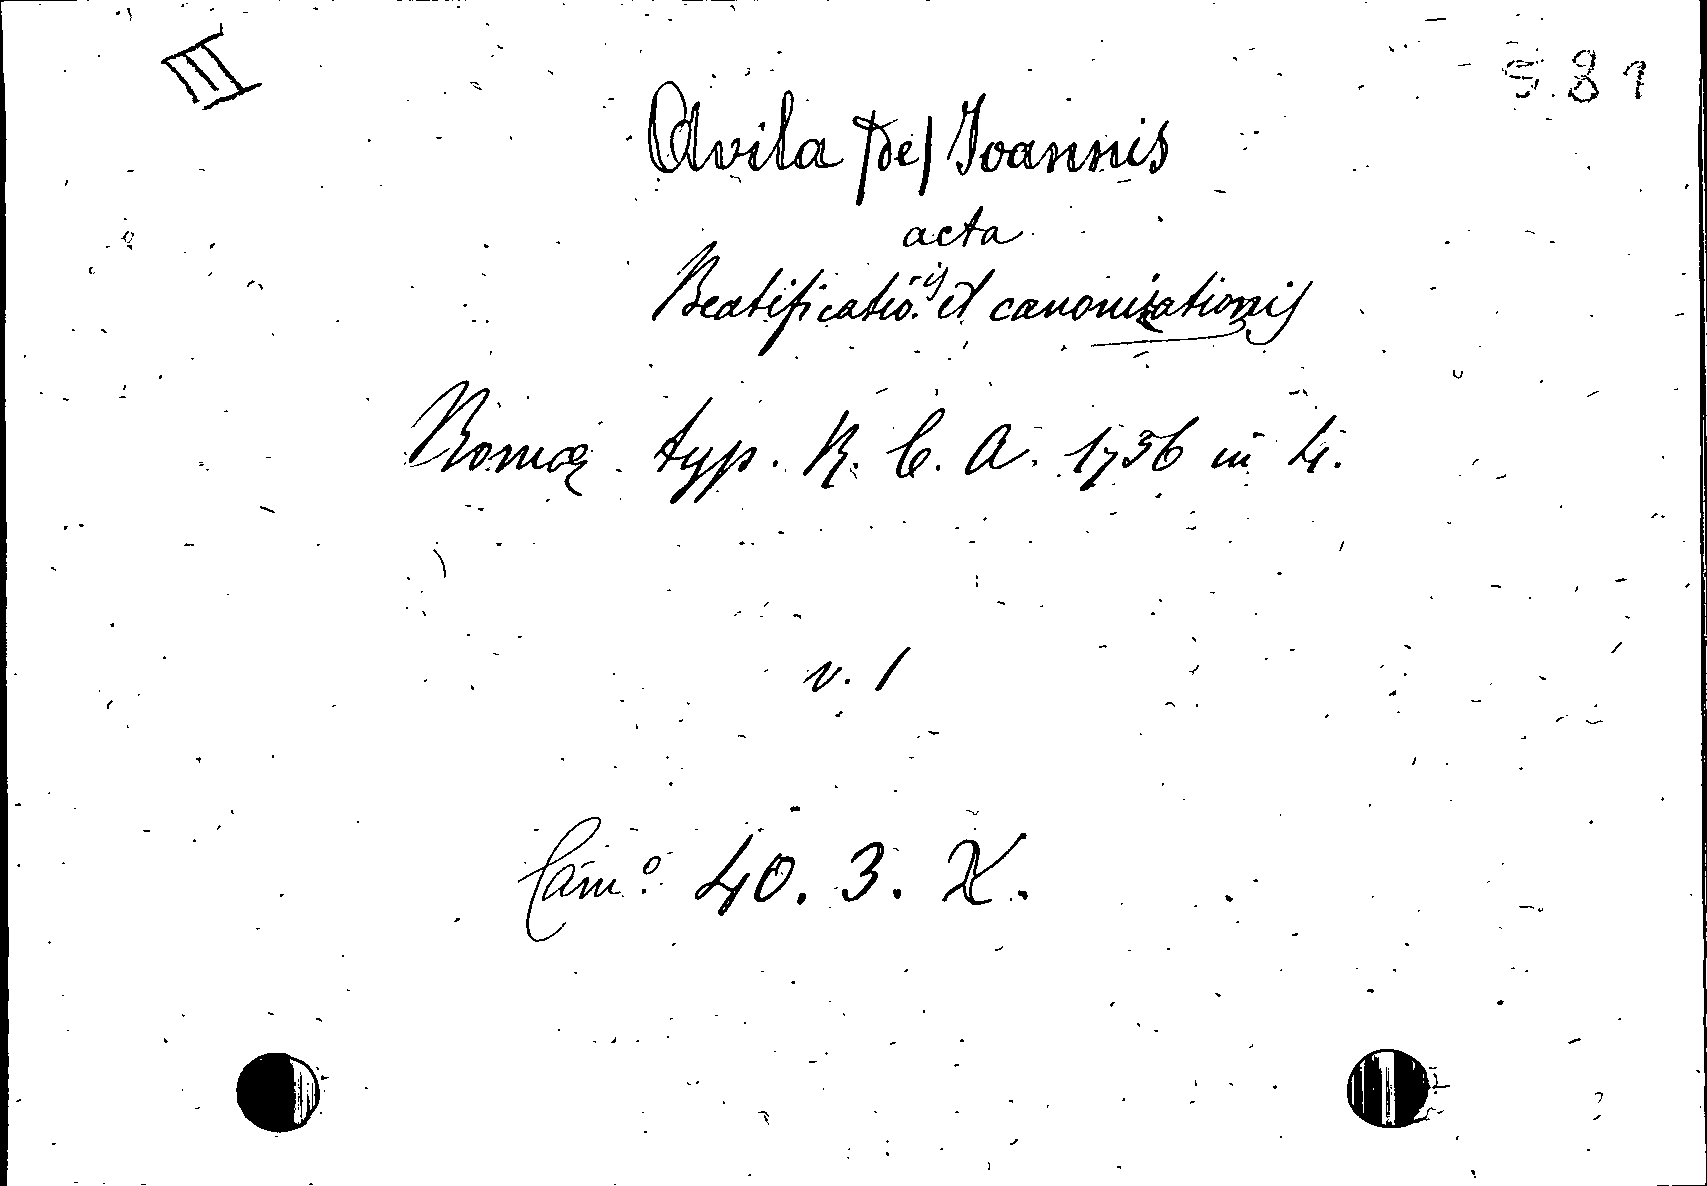 III
S. 81
Avila (de) Joannis
acta
Beatificatiōis et canonizationis
Romæ typ. R. C. A. 1736 in 4.
v. 1
Cam.º 40. 3. X.